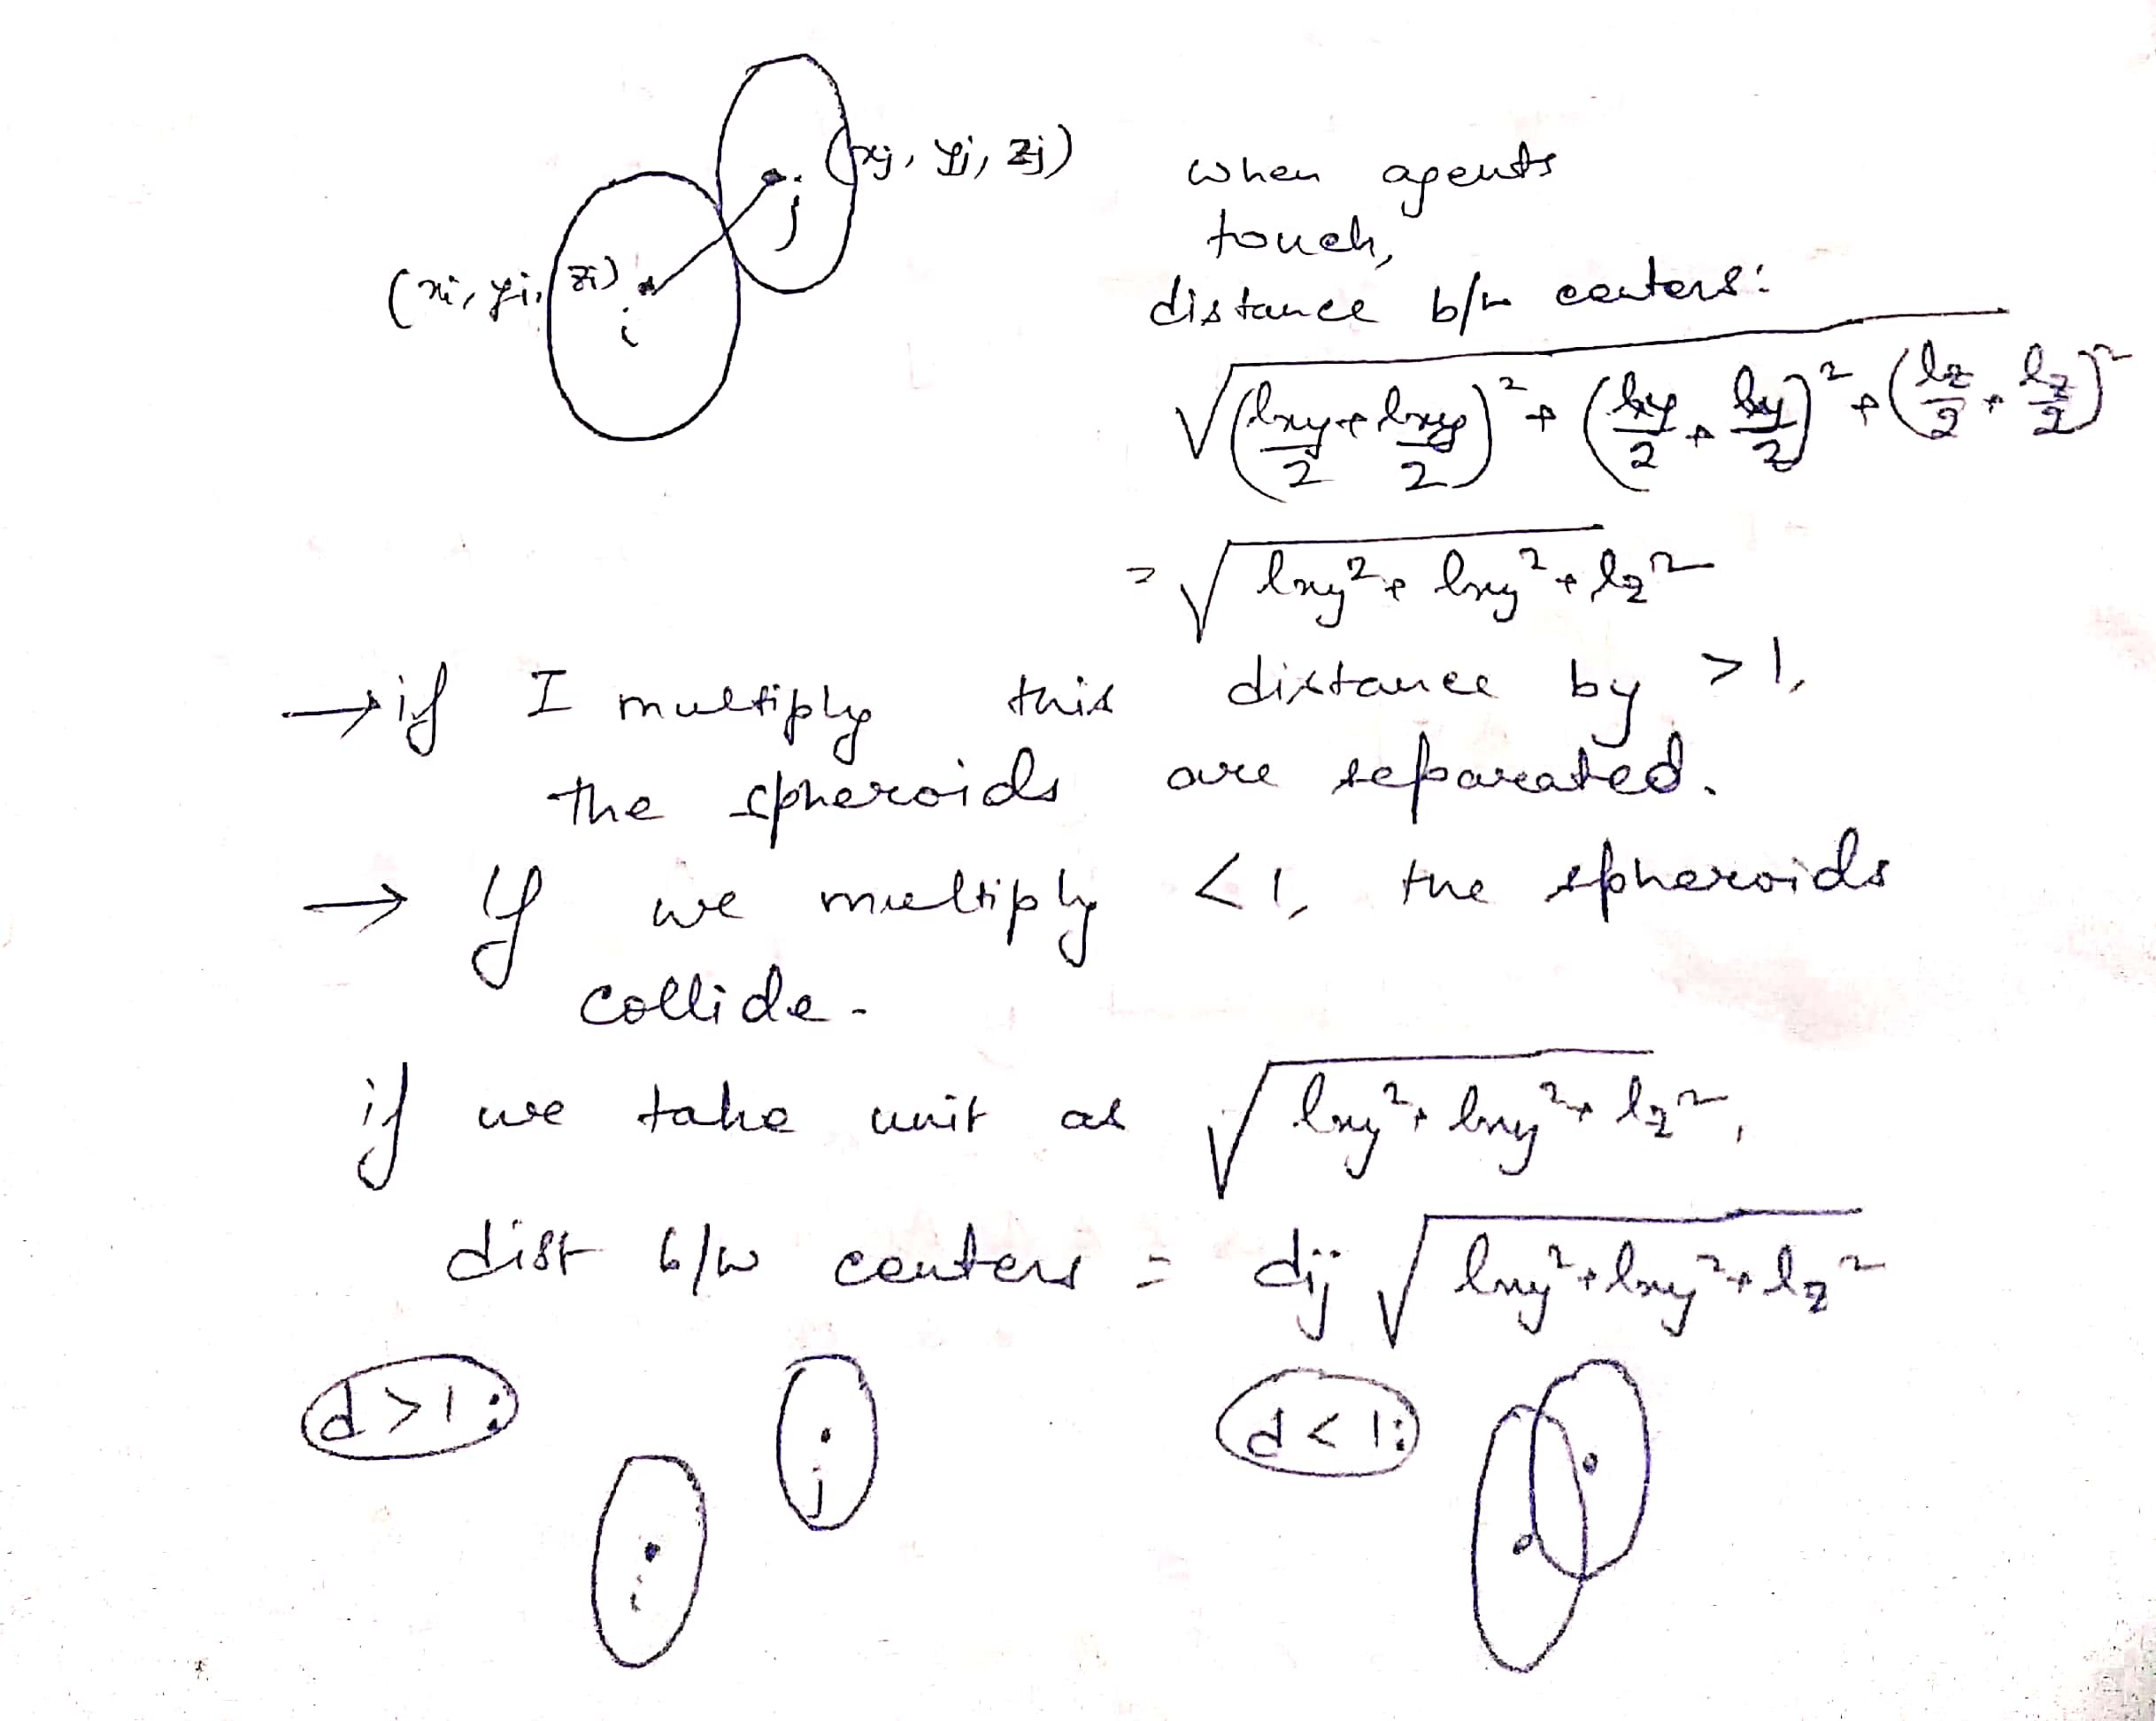 (xj, yj, zj)
j
(xi, yi, zi)
i
when agents
touch,
distance b/w centers:
√((lxy/2 + lxy/2)² + (lxy/2 + lxy/2)² + (lz/2 + lz/2)²)
= √(lxy² + lxy² + lz²)
→ if I multiply this distance by > 1,
the spheroids are separated.
→ If we multiply < 1, the spheroids
collide.
if we take unit as √(lxy² + lxy² + lz²),
dist b/w centers = dij √(lxy² + lxy² + lz²)
d > 1:
j
i
d < 1: